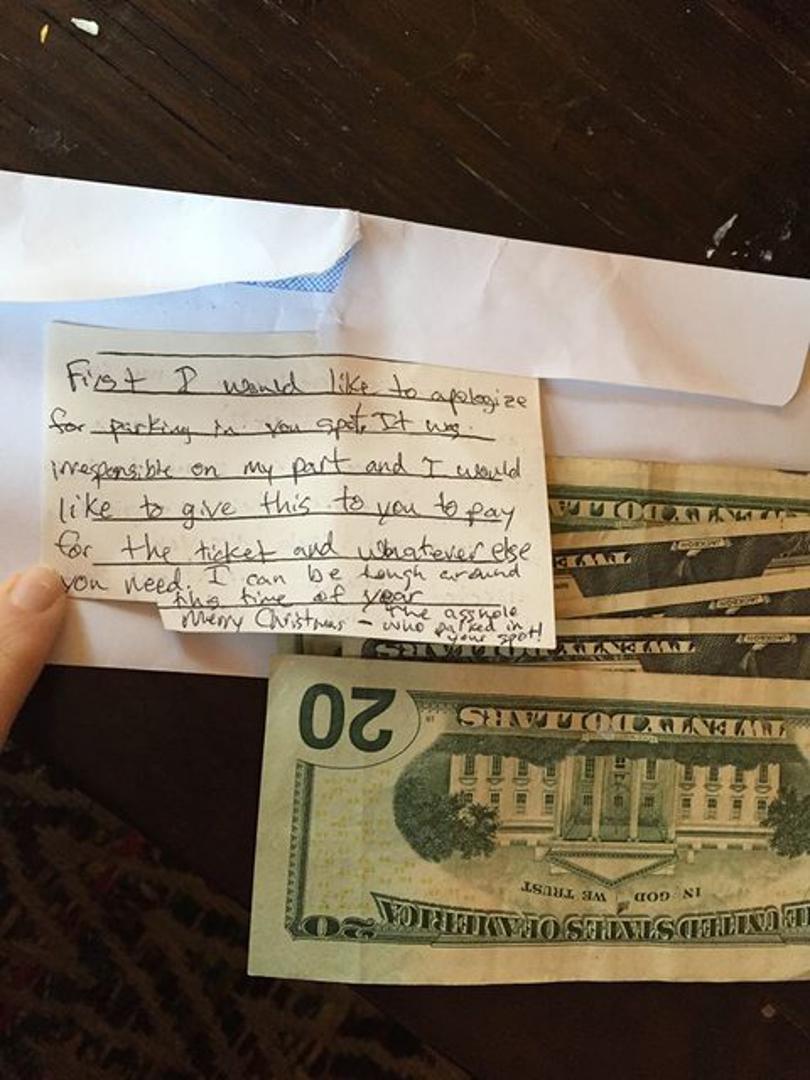 First I would like to apologize
for parking in you spot. It was
irresponsible on my part and I would
like to give this to you to pay
for the ticket and whatever else
you need. I can be tough around
this time of year
Merry Christmas - the asshole
who parked in
your spot!
TWENTY DOLLARS
JACKSON
JACKSON
JACKSON
TWENTY DOLLARS
20
TWENTY DOLLARS
IN GOD WE TRUST
THE UNITED STATES OF AMERICA
20